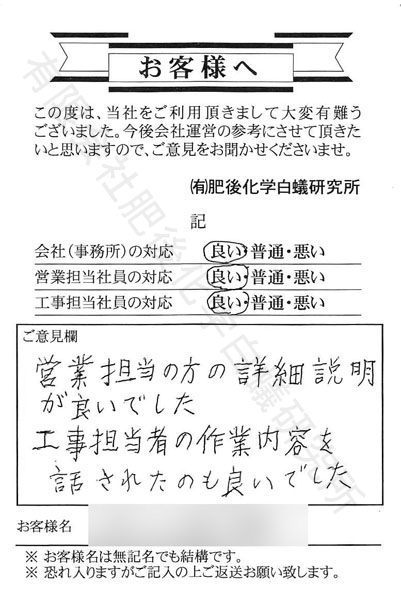 お客様へ
この度は、当社をご利用頂きまして大変有難う
ございました。今後会社運営の参考にさせて頂きた
いと思いますので、ご意見をお聞かせくださいませ。
㈲肥後化学白蟻研究所
記
会社(事務所)の対応 良い・普通・悪い
営業担当社員の対応 良い・普通・悪い
工事担当社員の対応 良い・普通・悪い
ご意見欄
営業担当の方の詳細説明
が良いでした
工事担当者の作業内容を
話されたのも良いでした
お客様名
※ お客様名は無記名でも結構です。
※ 恐れ入りますがご記入の上ご返送お願い致します。
有限会社肥後化学白蟻研究所